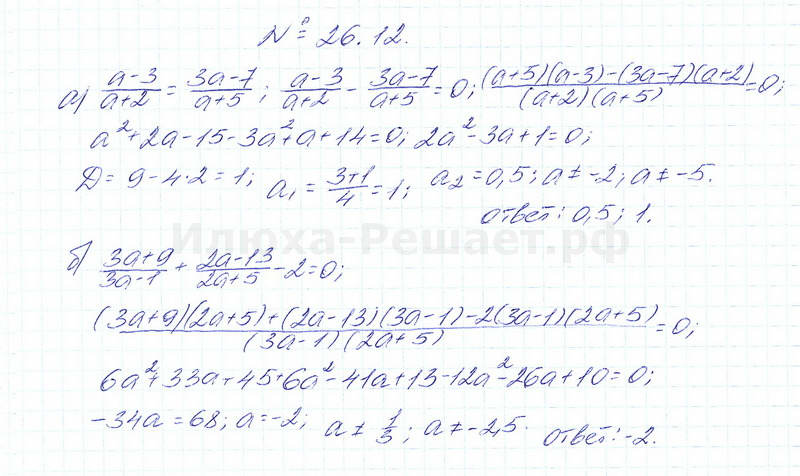 № 26.12.
а) (a-3)/(a+2) = (3a-7)/(a+5); (a-3)/(a+2) - (3a-7)/(a+5) = 0; ((a+5)(a-3)-(3a-7)(a+2))/((a+2)(a+5)) = 0;
a²+2a-15-3a²+a+14=0; 2a²-3a+1=0;
Д = 9-4·2=1; a₁ = (3+1)/4 = 1; a₂ = 0,5; a ≠ -2; a ≠ -5.
ответ: 0,5; 1.
Илюха-Решает.рф
б) (3a+9)/(3a-1) + (2a-13)/(2a+5) - 2=0;
((3a+9)(2a+5)+(2a-13)(3a-1)-2(3a-1)(2a+5))/((3a-1)(2a+5)) = 0;
6a²+33a+45+6a²-41a+13-12a²-26a+10=0;
-34a = 68; a=-2; a ≠ 1/3; a ≠ -2,5. ответ: -2.